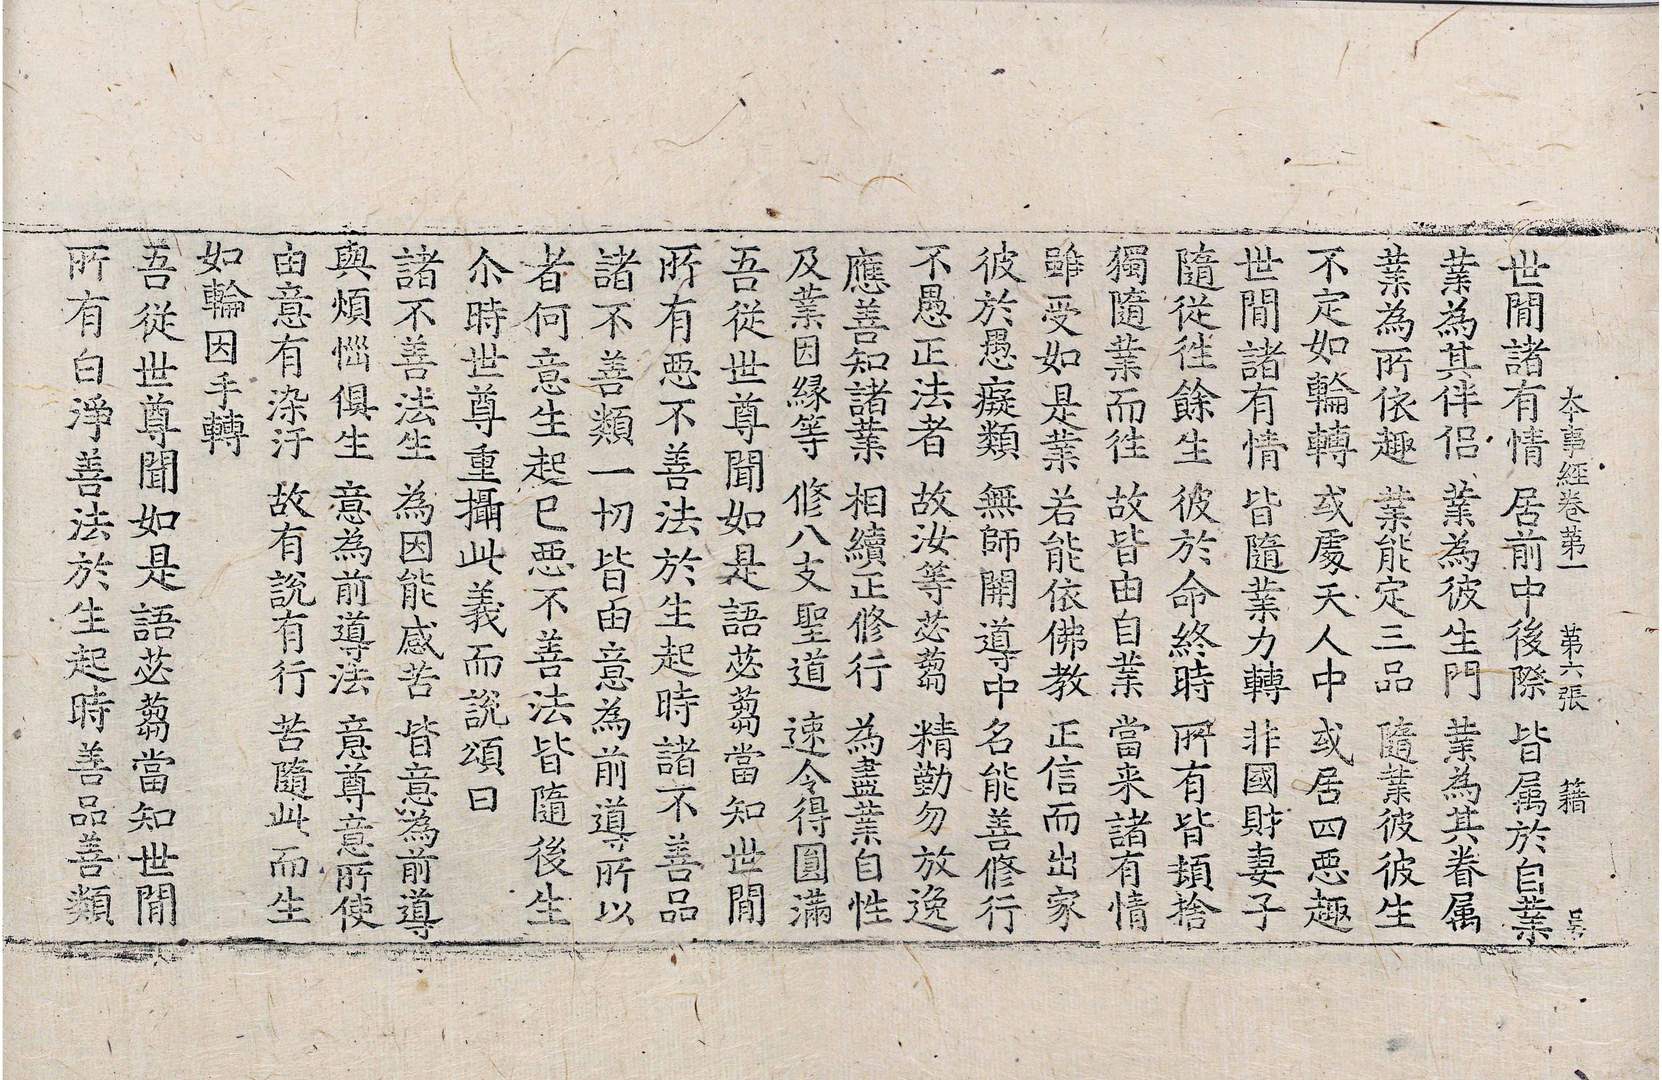 本事經卷第一 第六張 籍
世間諸有情 居前中後際 皆属於自業
業為其伴侶 業為彼生門 業為其眷属
業為所依趣 業能定三品 隨業彼彼生
不定如輪轉 或處天人中 或居四惡趣
世間諸有情 皆隨業力轉 非國財妻子
隨從往餘生 彼於命終時 所有皆頓捨
獨隨業而往 故皆由自業 當来諸有情
雖受如是業 若能依佛教 正信而出家
彼於愚癡類 無師開導中 名能善修行
不愚正法者 故汝等苾蒭 精勤勿放逸
應善知諸業 相續正修行 為盡業自性
及業因緣等 修八支聖道 速令得圓滿
吾從世尊聞如是語苾蒭當知世間
所有惡不善法於生起時諸不善品
諸不善類一切皆由意為前導所以
者何意生起已惡不善法皆隨後生
尒時世尊重攝此義而說頌曰
諸不善法生 為因能感苦 皆意為前導
與煩惱俱生 意為前導法 意尊意所使
由意有染汙 故有說有行 苦隨此而生
如輪因手轉
吾從世尊聞如是語苾蒭當知世間
所有白淨善法於生起時善品善類